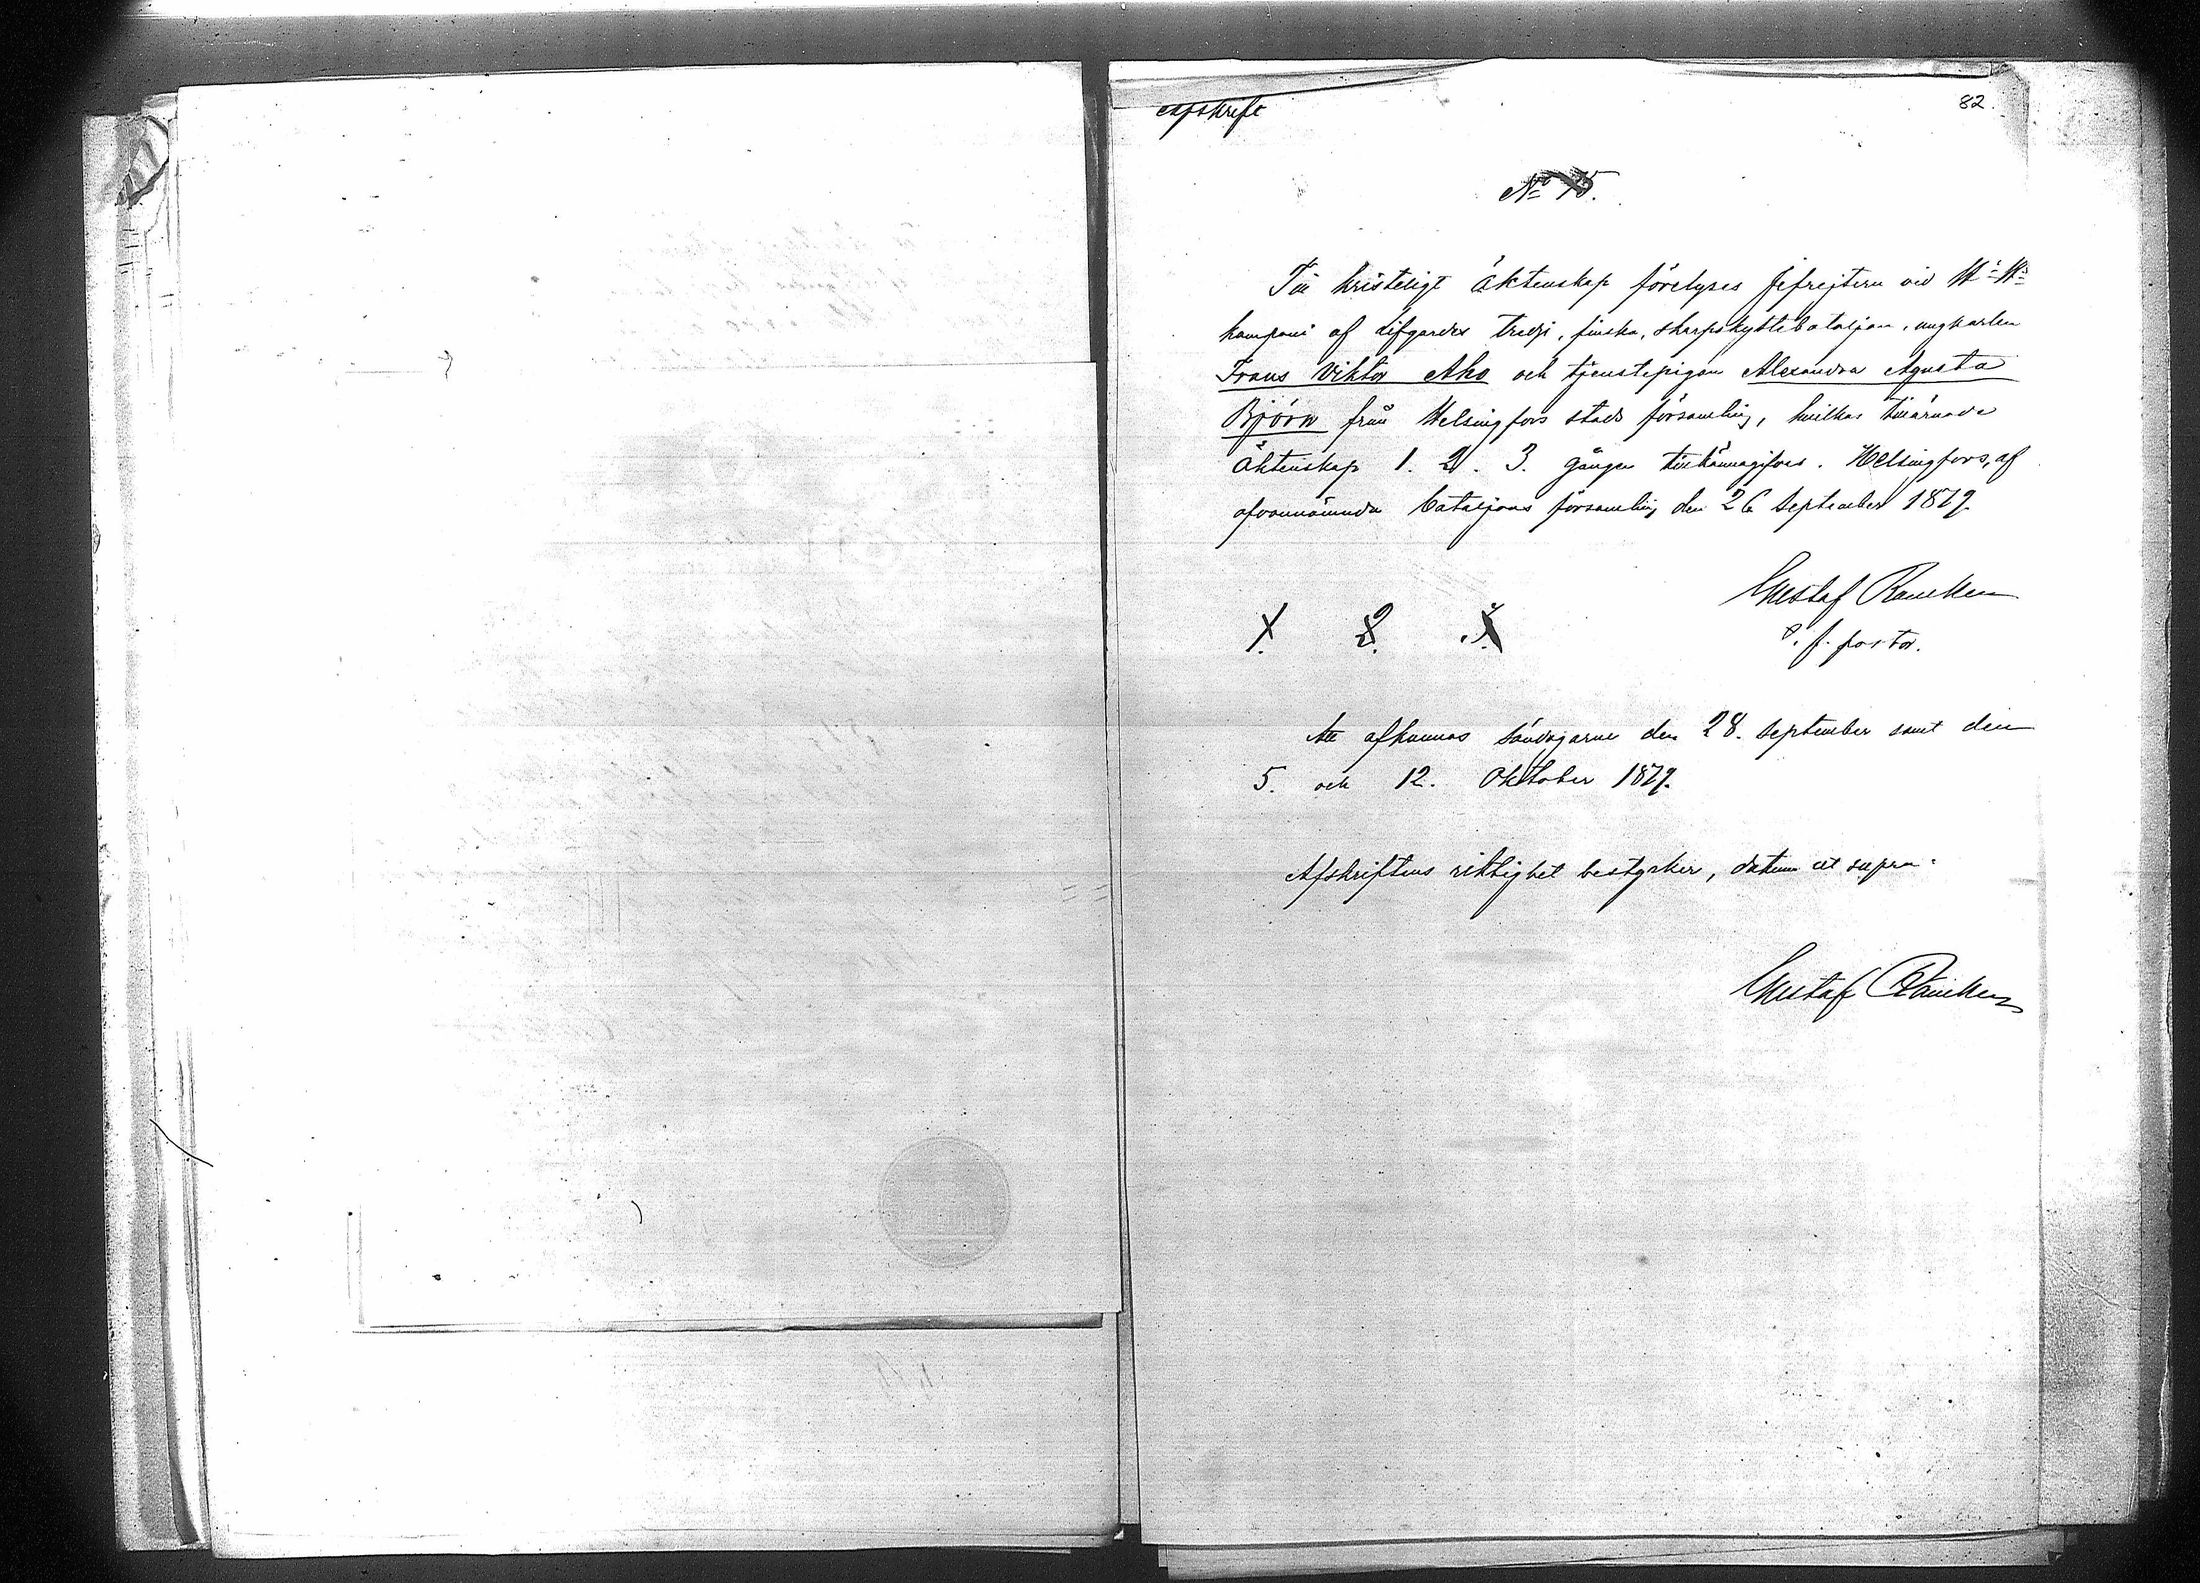 Afskrift
82.
No 75.
Till kristeligt äktenskap förelyses Jefrejtern vid H: M:s
kompani af Lifgardes tredje, finska, skarpskyttebataljon, ungkarlen
Frans Viktor Aho och tjenstepigan Alexandra Agusta
Björn från Helsingfors stads församling, hvilkas tillärnade
äktenskap 1. 2. 3. gången tillkännagifves. Helsingfors, af
ofvannämnda bataljons församling den 26 September 1879.
Gustaf Rancken
v. f. pastor.
1. 2. 3.
Att afkunnas söndagarne den 28. September samt den
5. och 12. Oktober 1879.
Afskriftens riktighet bestyrker, datum ut supra.
Gustaf Rancken